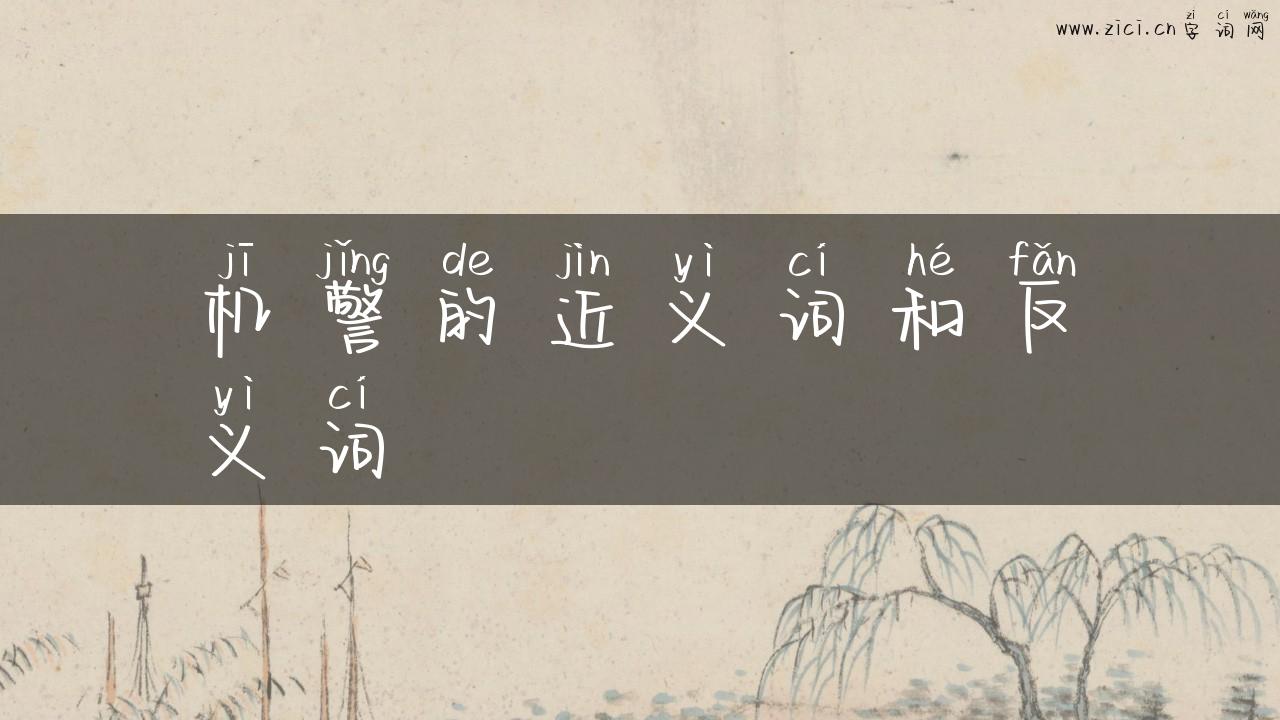 zì cí wǎng
www.zici.cn 字词网
jī jǐng de jìn yì cí hé fǎn
机警的近义词和反
yì cí
义词